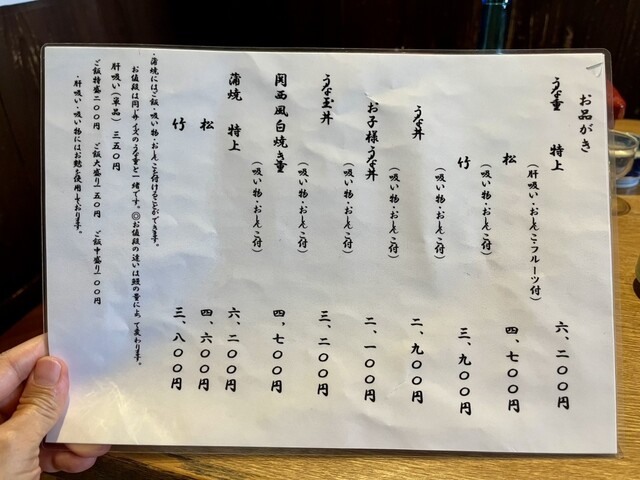 お品がき
うな重　特上　（肝吸い・おしんこ・フルーツ付）　六、二〇〇円
松　（吸い物・おしんこ付）　四、七〇〇円
竹　（吸い物・おしんこ付）　三、九〇〇円
うな丼　（吸い物・おしんこ付）　二、九〇〇円
お子様うな丼　（吸い物・おしんこ付）　二、一〇〇円
うな玉丼　（吸い物・おしんこ付）　三、二〇〇円
関西風白焼き重　（吸い物・おしんこ付）　四、七〇〇円
蒲焼　特上　六、二〇〇円
松　四、六〇〇円
竹　三、八〇〇円
・蒲焼にはご飯・吸い物・おしんこを付けることができます。
お値段は同じサイズのうな重と一緒です。◎お値段の違いは鰻の量によって変わります。
肝吸い（単品）三五〇円
ご飯特盛二〇〇円　ご飯大盛り一五〇円　ご飯中盛り一〇〇円
・肝吸い・吸い物にはお麩を使用しております。